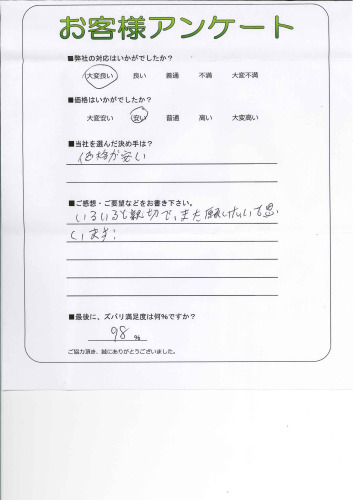 お客様アンケート
■弊社の対応はいかがでしたか？
大変良い 良い 普通 不満 大変不満
■価格はいかがでしたか？
大変安い 安い 普通 高い 大変高い
■当社を選んだ決め手は？
価格が安い
■ご感想・ご要望などをお書き下さい。
いろいろと親切で、また願いたいと思
います！
■最後に、ズバリ満足度は何％ですか？
98 %
ご協力頂き、誠にありがとうございました。